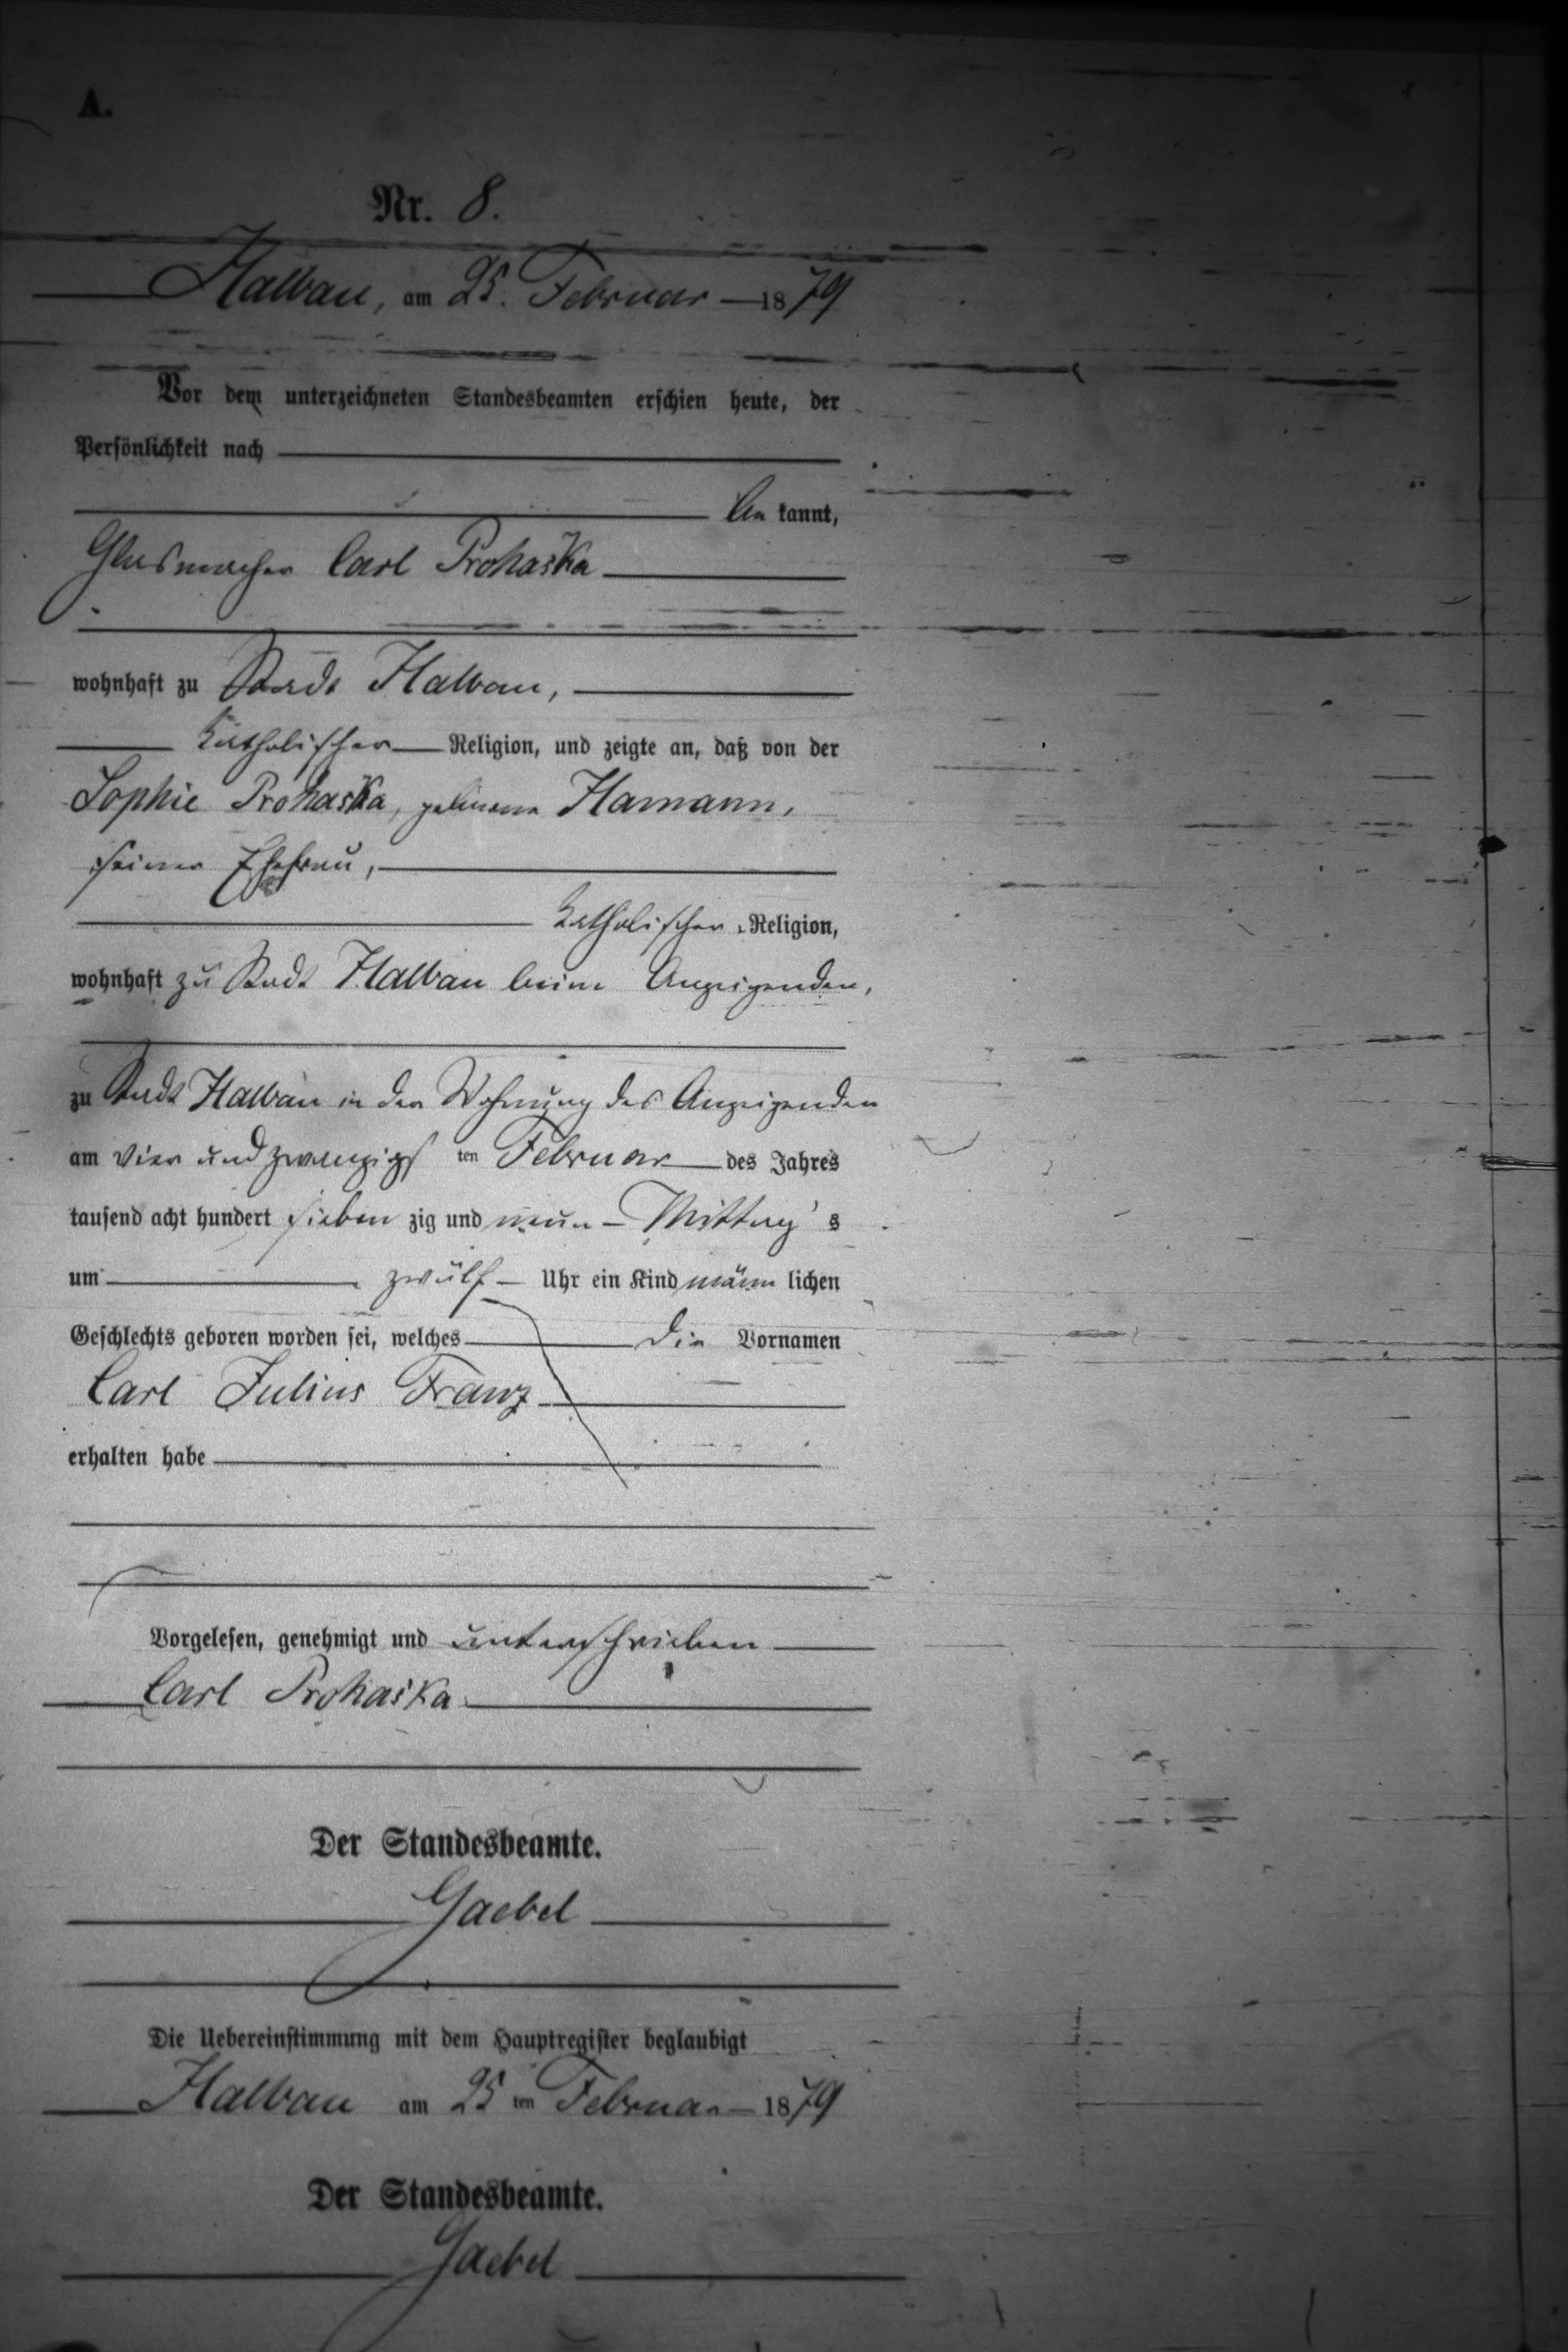 A.
Nr. 8.
Halbau, am 25. Februar 1879
Vor dem unterzeichneten Standesbeamten erschien heute, der
Persönlichkeit nach
be kannt,
Glasmacher Carl Prohaska
wohnhaft zu Stadt Halbau,
katholischer Religion, und zeigte an, daß von der
Sophie Prohaska, geborene Hamann,
seiner Ehefrau,
katholischer Religion,
wohnhaft zu Stadt Halbau beim Anzeigenden,
zu Stadt Halbau in der Wohnung des Anzeigenden
am vier und zwanzigs ten Februar des Jahres
tausend acht hundert sieben zig und neun Mittag's
um zwölf Uhr ein Kind männ lichen
Geschlechts geboren worden sei, welches die Vornamen
Carl Julius Franz
erhalten habe
Vorgelesen, genehmigt und unterschrieben
Carl Prohaska
Der Standesbeamte.
Gaebel
Die Uebereinstimmung mit dem Hauptregister beglaubigt
Halbau am 25 ten Februar 1879
Der Standesbeamte.
Gaebel